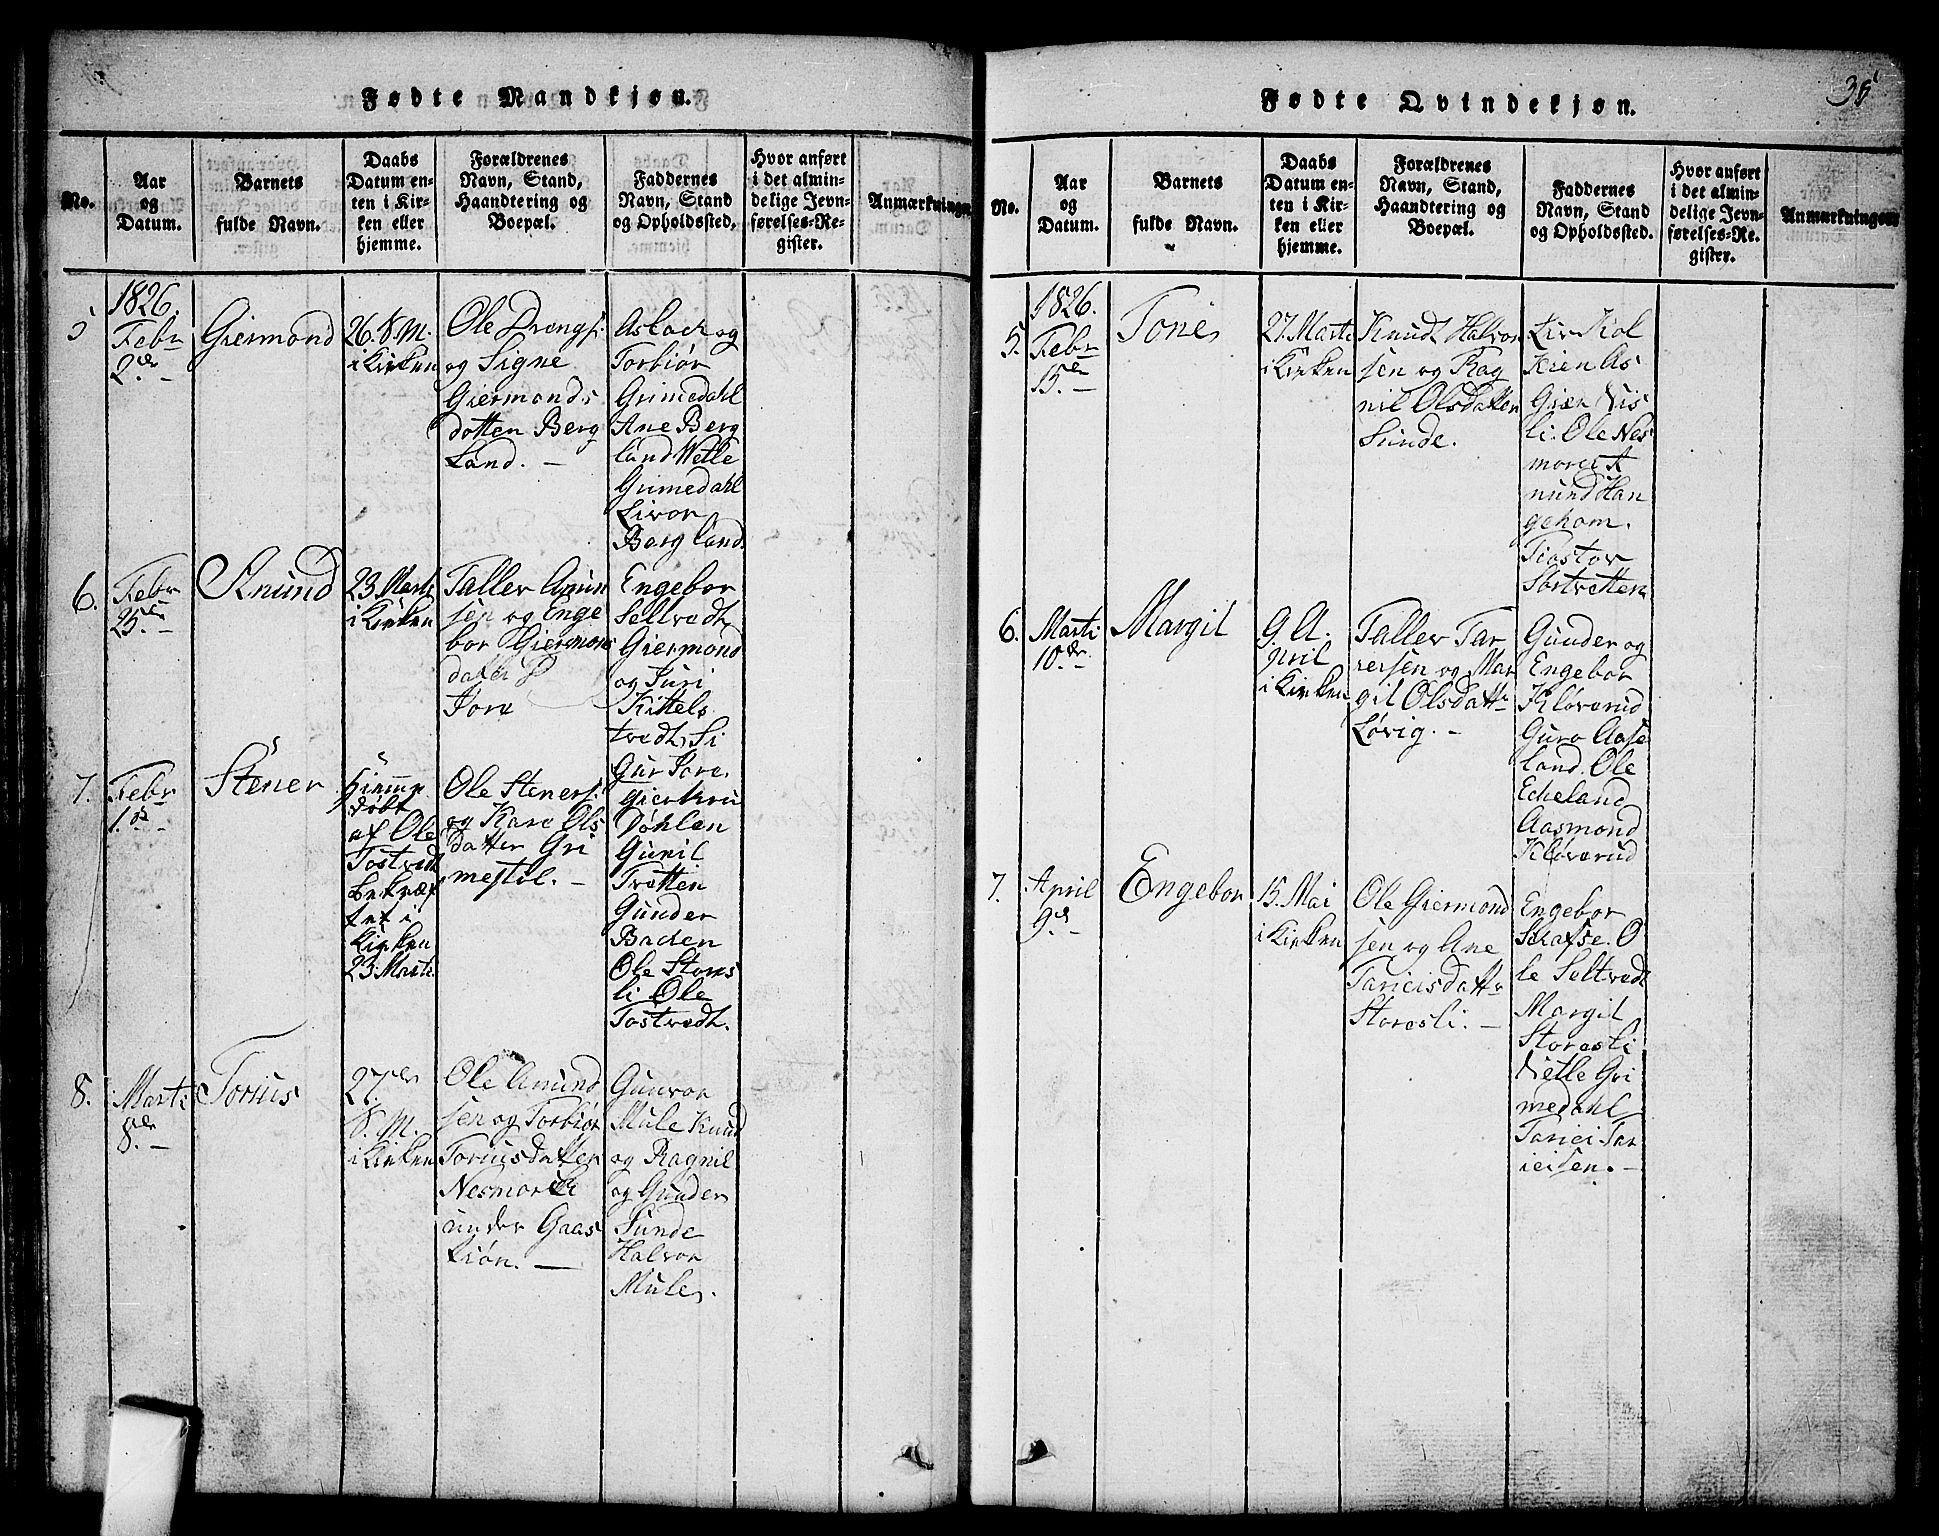 Fødte Mandkjøn.
No.
Aar
og
Datum.
Barnets
fulde Navn.
Daabs
Datum en-
ten i Kir-
ken eller
hjemme.
Forældrenes
Navn, Stand,
Haandtering og
Boepæl.
Faddernes
Navn, Stand
og Opholdssted.
Hvor anført
i det almin-
delige Jevn-
førelses-Re-
gister.
Anmærkninge
5
1826.
Febr
2de –
Giermond
26. S. M.
i Kirken
Ole Drengs:
og Signe
Giermonds
dotten Berg
Land. –
Aslach og
Torbiør
Grimedahl
Ane Berg
land Wetle
Grimedahl
Livor
Bergland.
6.
Febr
25de –
Knund
23 Marti
i Kirken
Taller Amun
sen og Enge
bor Giermon
Jore
Engebor
Seltvedt
Giermond
og Juri
Kittels
tvedt, Si
Gur Jore
7.
Febr
1.
Stener
Hiemme
døbt
af Ole
Tostvedt
bekræf
tet i
Kirken
23 Marti
Ole Steners:
og Kare Ols
datter Gri
mestøl. –
Gierkru
Døhlen
Gunil
Tvetten
Gunder
Baden
Ole Stores
li Ole
Tostvedt.
8.
Marti
8de –
Torius
27de
S. M.
i Kirken
Ole Amund
sen og Torbiør
Toriusdatter
Nesmor
under Gaas
kiøn. –
Gunvor
Mule Knud
og Ragnil
og Gunder
Sunde
Halvor
Mule.
Fødte Qvindekjøn.
36
No.
Aar
og
Datum.
Barnets
fulde Navn.
Daabs
Datum en-
ten i Kir-
ken eller
hjemme.
Forældrenes
Navn, Stand,
Haandtering og
Boepæl.
Faddernes
Navn, Stand
og Opholdssted.
Hvor anført
i det almin-
delige Jevn-
førelses-Re-
gister.
Anmærkningen
5.
1826.
Febr
15de –
Tone
27. Marti
i Kirken
Knudt Halvor
sen og Rag
nil Olsdatter
Sunde.
Liv Kol
Kien As
li. Ole Nes
nund Han
gehom.
Tiostov
Sortvetten
6.
Marti
10de –
Margil
9. A.
pril
i Kirken
Taller Tar
sen og Mar
gil Olsdatt
Løvig. –
Gunder og
Engebor
Kløverud
Guro Aase
land. Ole
Echeland
Aasmond
Kløverud
7.
April
9de –
Engebor
15. Mai
i Kirken
Ole Giermond
sen og Ane
Tarieisdatte
Storesli. –
Engebor
O
le Seltvedt
Margil
Storesli
Vetle Gri
medahl
Tariei Tar
ieisen. –